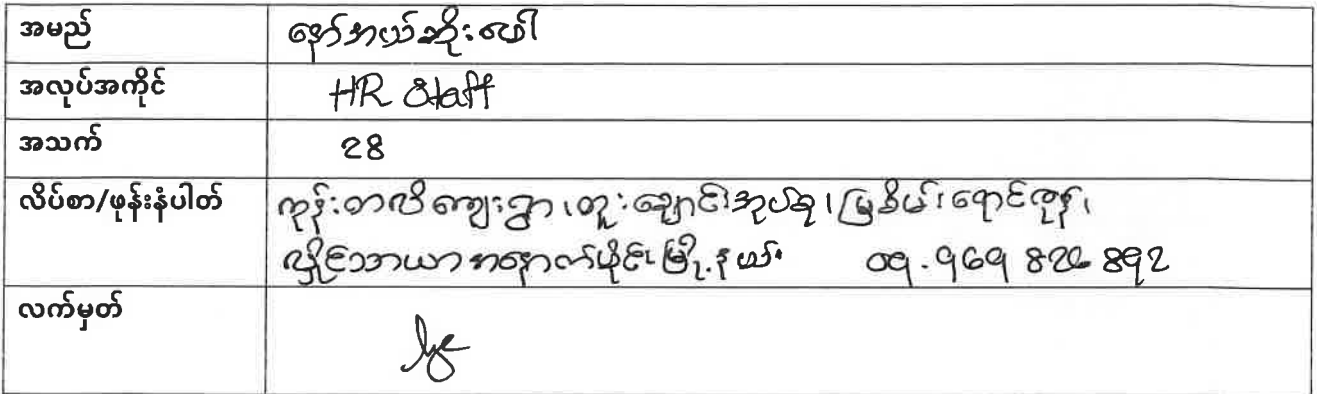 အမည် နော်အယ်ဆိုးဖေါ
အလုပ်အကိုင် HR Staff
အသက် 28
လိပ်စာ/ဖုန်းနံပါတ် ကုန်းတလိကျေးရွာ၊ တူးချောင်းအုပ်စု၊ မြစိမ်းရောင်လမ်း၊
လှိုင်သာယာအနောက်ပိုင်းမြို့နယ်။ 09.969 826 892
လက်မှတ်